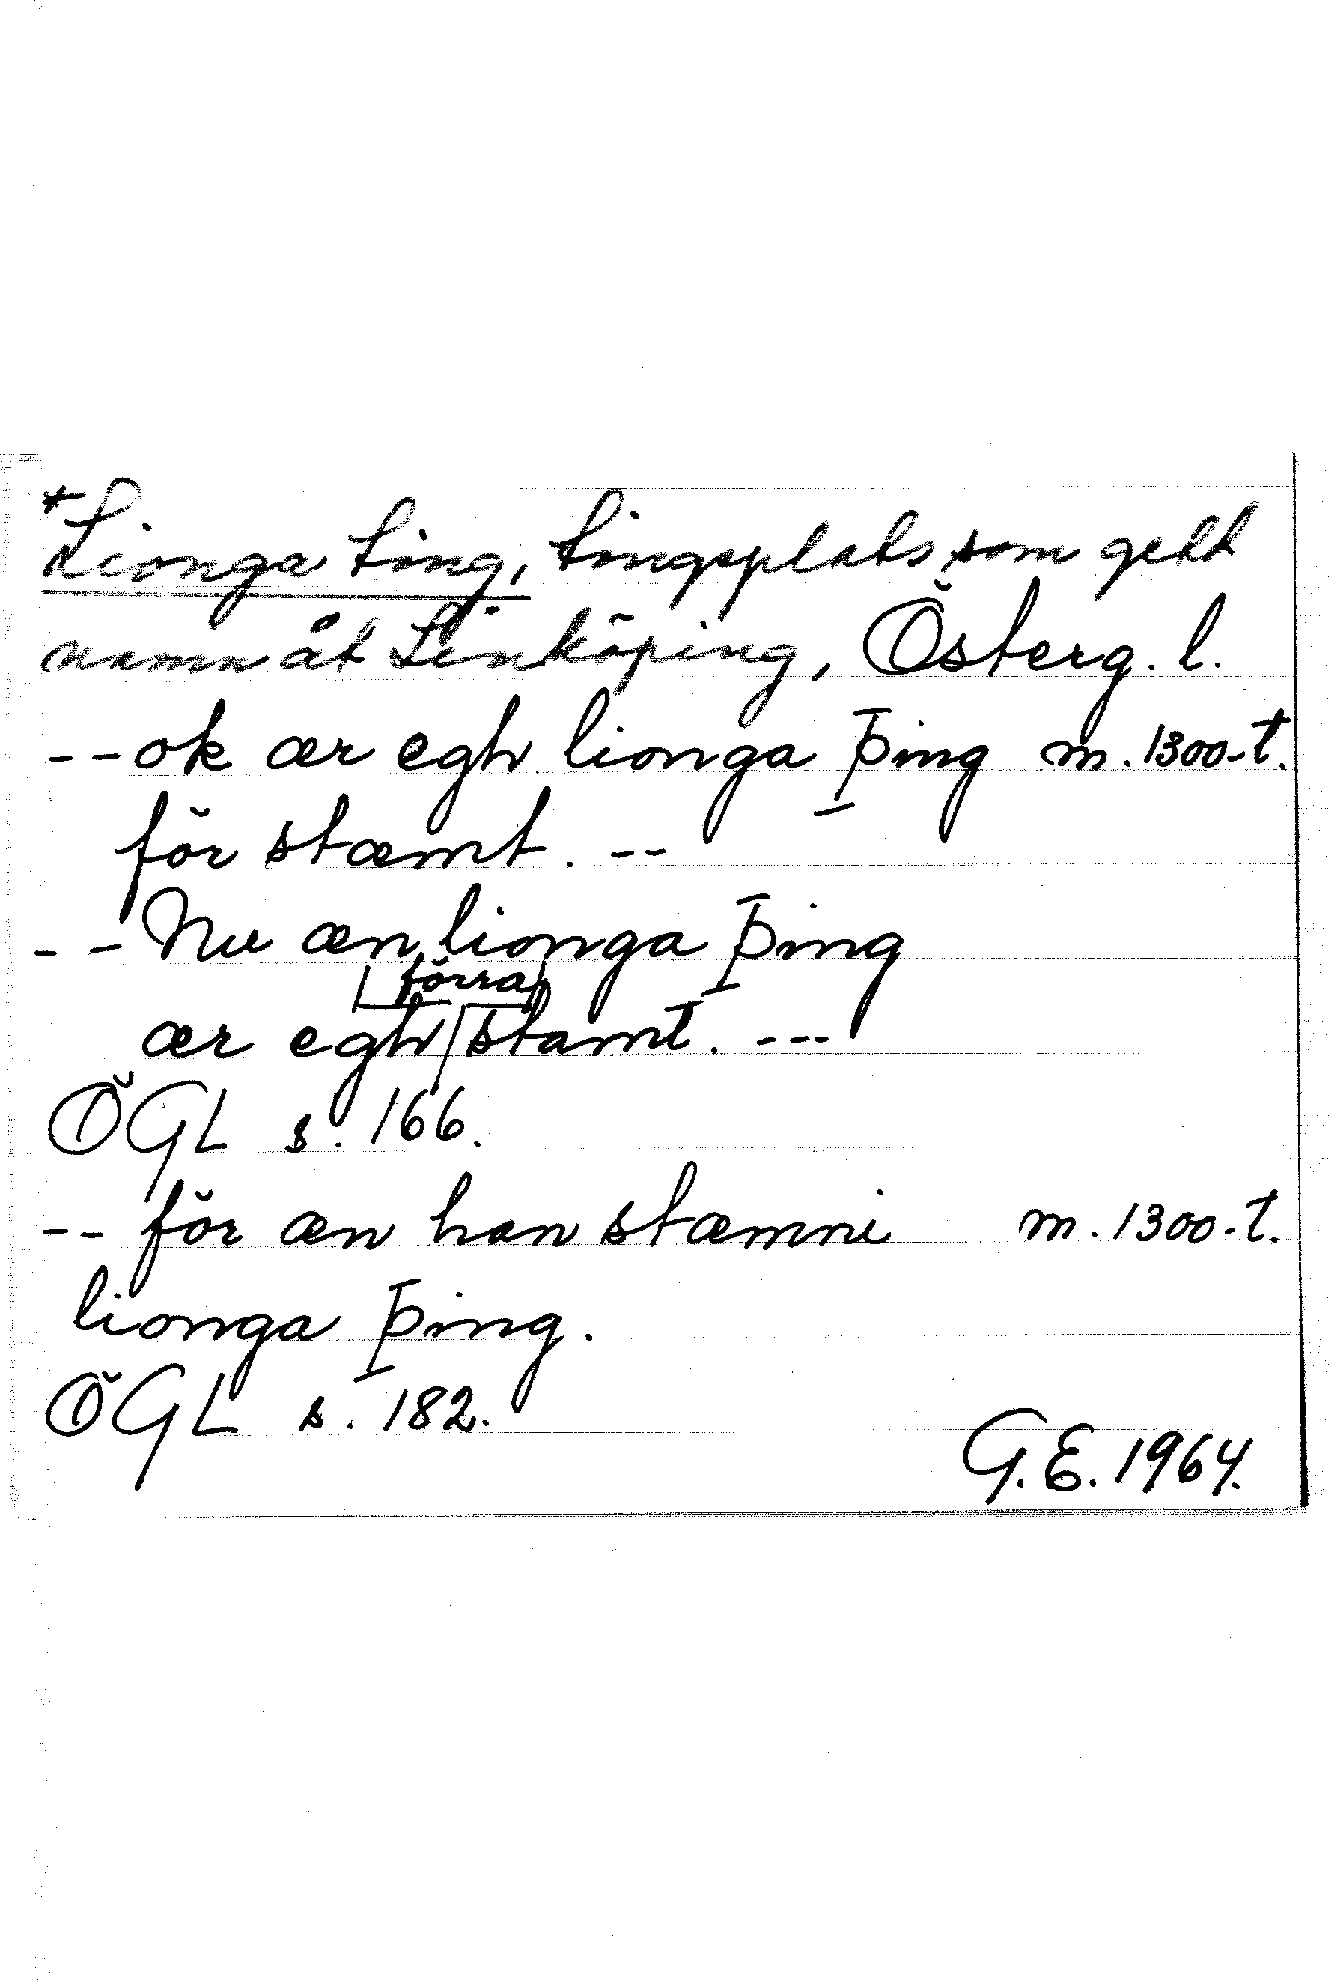 *Lionga ting, tingsplats som gett
namn åt Linköping, Österg. l.
-- ok ær egh lionga þing m. 1300-t.
för stæmt. --
-- Nu æn lionga þing
förra
ær egh stamt. ---
ÖGL s. 166.
-- för æn han stæmni m. 1300-t.
lionga þing.
ÖGL s. 182.
G.E. 1964.